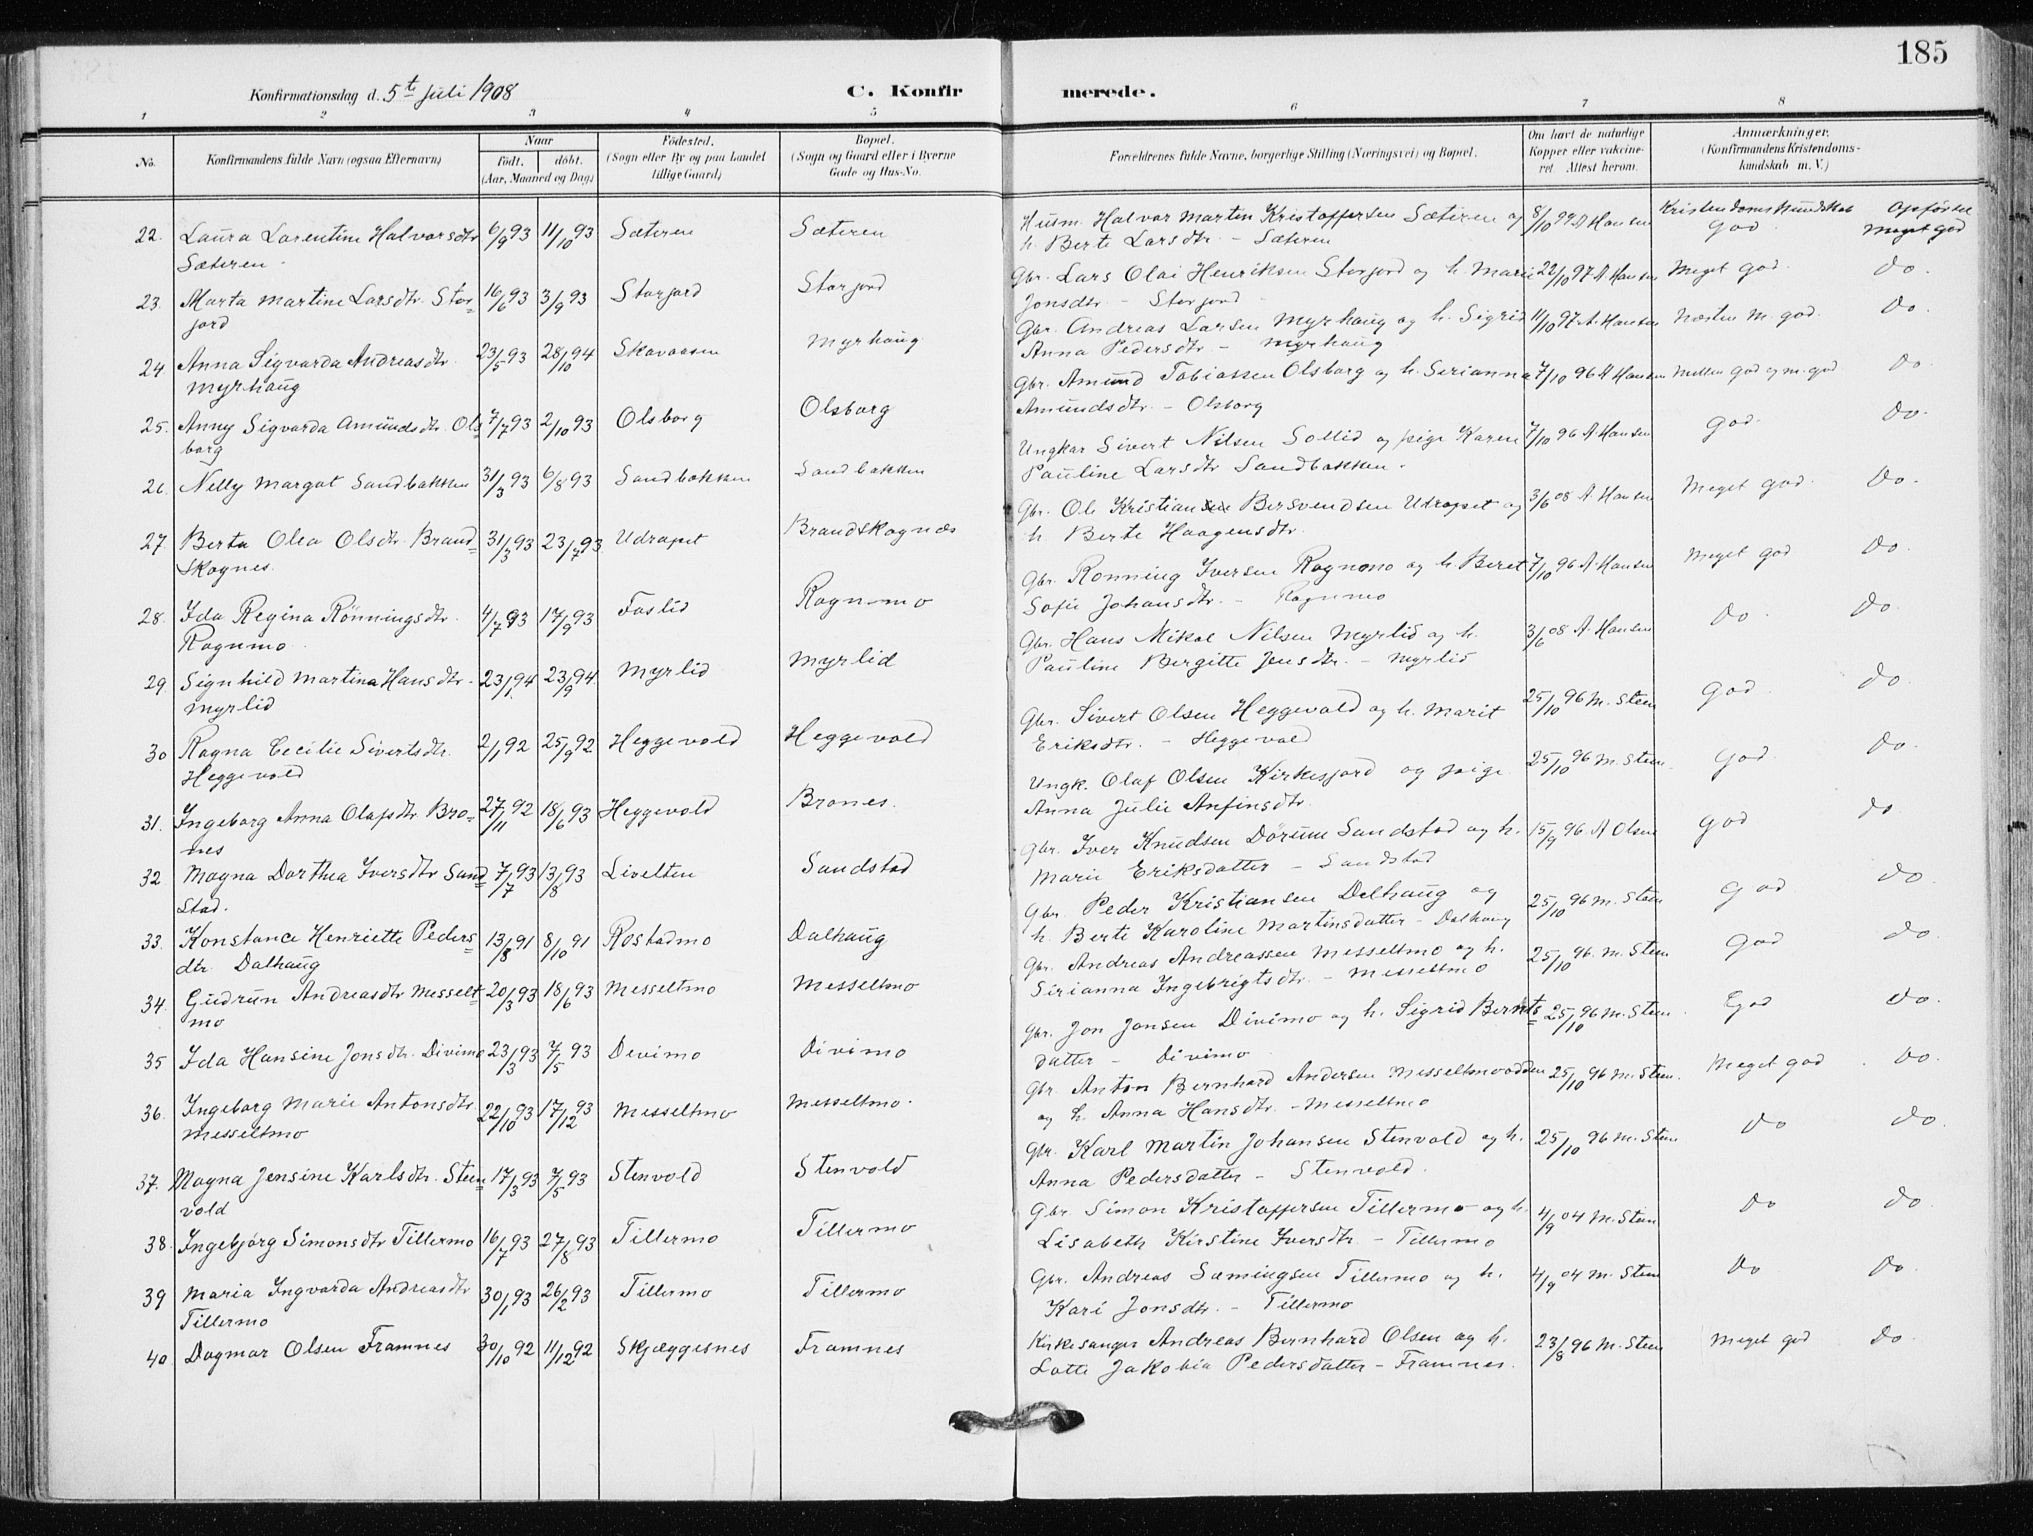 185
Konfirmationsdag d. 5te Juli 1908
C. Konfirmerede.
1 2 3 4 5 6 7 8
No. Konfirmandens fulde Navn (ogsaa Efternavn) Naar født. døbt. (Aar, Maaned og Dag) Fødested. (Sogn eller By og paa Landet tillige Gaard) Bopæl. (Sogn og Gaard eller i Byerne Gade og Hus-No. Forældrenes fulde Navne, borgerlige Stilling (Næringsvei) og Bopæl. Om havt de naturlige Kopper eller vakcineret. Attest herom. Anmærkninger. (Konfirmandens Kristendomskundskab m. V.)
22. Laura Larentine Halvorsdtr 6/9 93 11/10 93 Sæteren Sæteren Husm. Halvor Martin Kristoffersen Sæteren og 8/10 99 A Hansen Kristendomskundskab God Opførsel meget god
Sæteren. h. Berte Larsdtr. – Sæteren
23. Marta Martine Larsdtr. Stor= 16/6 93 3/9 93 Storjord Storjord Gbr. Lars Olai Henriksen Storjord og h. Marie 22/10 97 A Hansen Meget god. do.
jord Jonsdtr. – Storjord
24. Anna Sigvarda Andreasdtr. 23/5 93 28/10 94 Skavaasen Myrhaug Gbr. Andreas Larsen Myrhaug og h. Sigrid 11/10 97 A. Hansen Næsten m. god. do.
Myrhaug Anna Pedersdtr – Myrhaug
25. Anny Sigvarda Amundsdtr. Ols= 7/7 93 2/10 93 Olsborg Olsborg Gbr. Amund Tobiassen Olsborg og h. Serianna 7/10 96 A Hansen Mellem god og m. god do
borg Amundsdtr. – Olsborg
26. Nelly Margot Sandbakken 31/3 93 6/8 93 Sandbakken Sandbakken Ungkar Sivert Nilsen Sollid og pige Karen 7/10 96 A Hansen god. do.
Pauline Larsdtr Sandbakken.
27. Berta Olea Olsdtr. Brand= 31/3 93 23/7 93 Udrapet Brandskognæs Gbr. Ole Kristian Bersvendsen Udrapet og 3/6 08 A Hansen Meget god. do.
skognes. h. Berte Haagensdtr.
28. Ida Regina Rönningsdtr. 4/7 93 17/9 93 Foslid Rognmo Gbr. Ronning Iversen Rognmo og h. Beret 7/10 96 A Hansen Meget god do.
Rognmo Sofie Johansdtr. – Rognmo
29. Signhild Martina Hansdtr. 23/1 94 23/9 94 Myrlid Myrlid Gbr. Hans Mikal Nilsen Myrlid og h. 3/6 08 A Hansen do do.
Myrlid Pauline Bergitte Jensdtr. – Myrlid
30 Ragna Cecilie Sivertsdtr. 2/1 92 25/9 92 Heggevold Heggevold Gbr. Sivert Olsen Heggevold og h. Marit 25/10 96 M. Steen God. do.
Heggevold Eriksdtr. – Heggevold
31. Ingeborg Anna Olafsdtr. Bro= 27/11 92 18/6 93 Heggevold Brones. Ungk. Olaf Olsen Kirkesjord og pige 25/10 96 M. Steen. God do.
nes Anna Julie Anfinsdtr.
32 Magna Dorthea Iversdtr Sand= 7/7 93 13/8 93 Livelten Sandstad Gbr. Iver Knudsen Dörum Sandstad og h. 15/9 96. A Olsen God do
stad. Marie Eriksdatter – Sandstad
33. Konstance Henriette Peders= 13/8 91 8/10 91 Rostadmo Dalhaug Gbr. Peder Kristiansen Dalhaug og 25/10 96 M. Steen God do.
dtr. Dalhaug h. Berte Karoline Martinsdatter – Dalhaug
34. Gudrun Andreasdtr Messelt= 20/3 93 18/6 93 Messeltmo Messeltmo Gbr. Andreas Andreassen Messeltmo og h. 25/10 96. M. Steen God do.
mo Sirianna Ingebrigtsdtr. – Messeltmo
35 Ida Hansine Jonsdtr. Divimo 23/3 93 7/5 93 Devimo Divimo Gbr. Jon Jonsen Divimo og h. Sigrid Bernts= 25/10 96 M. Steen. God do.
datter – Divimo
36. Ingeborg Marie Antonsdtr. 22/10 93 17/12 93 Messeltmo Messeltmo. Gbr. Anton Bernhard Andersen Messeltmoodden 25/10 96 M. Steen. Meget god. do.
Messeltmo og h. Anna Hansdtr. – Messeltmo
37. Magna Jensine Karlsdtr. Steen= 17/3 93 7/5 93 Stenvold Stenvold Gbr. Karl Martin Johansen Stenvold og h. 25/10 96 M. Steen do do.
vold Anna Pedersdatter – Stenvold.
38. Ingebjörg Simonsdtr Tillermo 16/7 93 27/8 93 Tillermo Tillermo Gbr. Simon Kristoffersen Tillermo og h. 4/9 04 M. Steen do do.
Lisabeth Kirstine Iversdtr. – Tillermo
39 Maria Ingvarda Andreasdtr 30/1 93 26/2 93 Tillermo Tillermo Gbr. Andreas Sæmingsen Tillermo og h. 4/9 04 M. Steen do do.
Tillermo Kari Jonsdtr. – Tillermo
40. Dagmar Olsen Framnes 30/10 92 11/12 92 Skjæggesnes Framnes Kirkesanger Andreas Bernhard Olsen og h. 23/8 96 M. Steen Meget god do.
Lotte Jakobia Pedersdatter – Framnes.